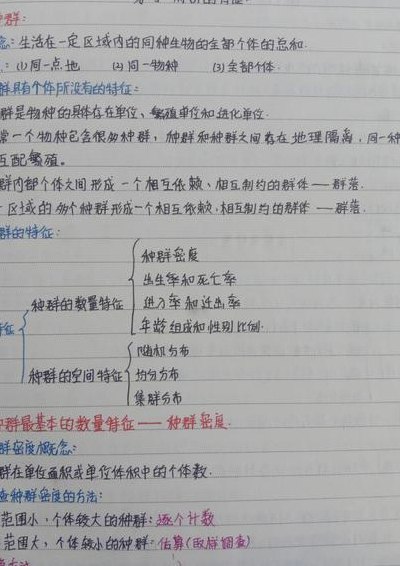 种群:
念:生活在一定区域内的同种生物的全部个体的总和.
:(1)同一点地 (2)同一物种 (3)全部个体.
群具有个体所没有的特征:
群是物种的具体存在单位、繁殖单位和进化单位.
常一个物种包含很多种群,种群和种群之间存在地理隔离,同一种
互配繁殖.
群内部个体之间形成一个相互依赖、相互制约的群体——群落.
一区域的多个种群形成一个相互依赖.相互制约的群体——群落.
群的特征:
种群密度
出生率和死亡率
种群的数量特征
迁入率和迁出率
特征
年龄组成和性别比例.
随机分布
种群的空间特征 均匀分布
集群分布
种群最基本的数量特征——种群密度.
群密度概念:
群在单位面积或单位体积中的个体数.
查种群密度的方法:
范围小,个体较大的种群:逐个计数
范围大,个体较小的种群:估算(取样调查)